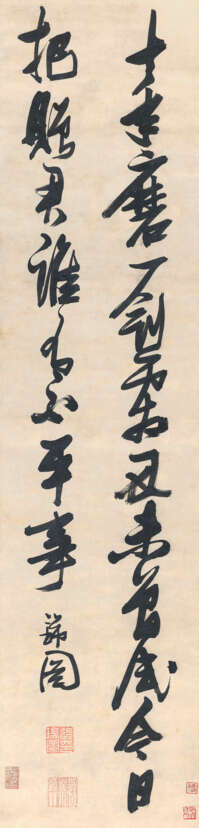 十年磨一劍霜刃未曾試今日
把贈君誰為不平事
瑞圖